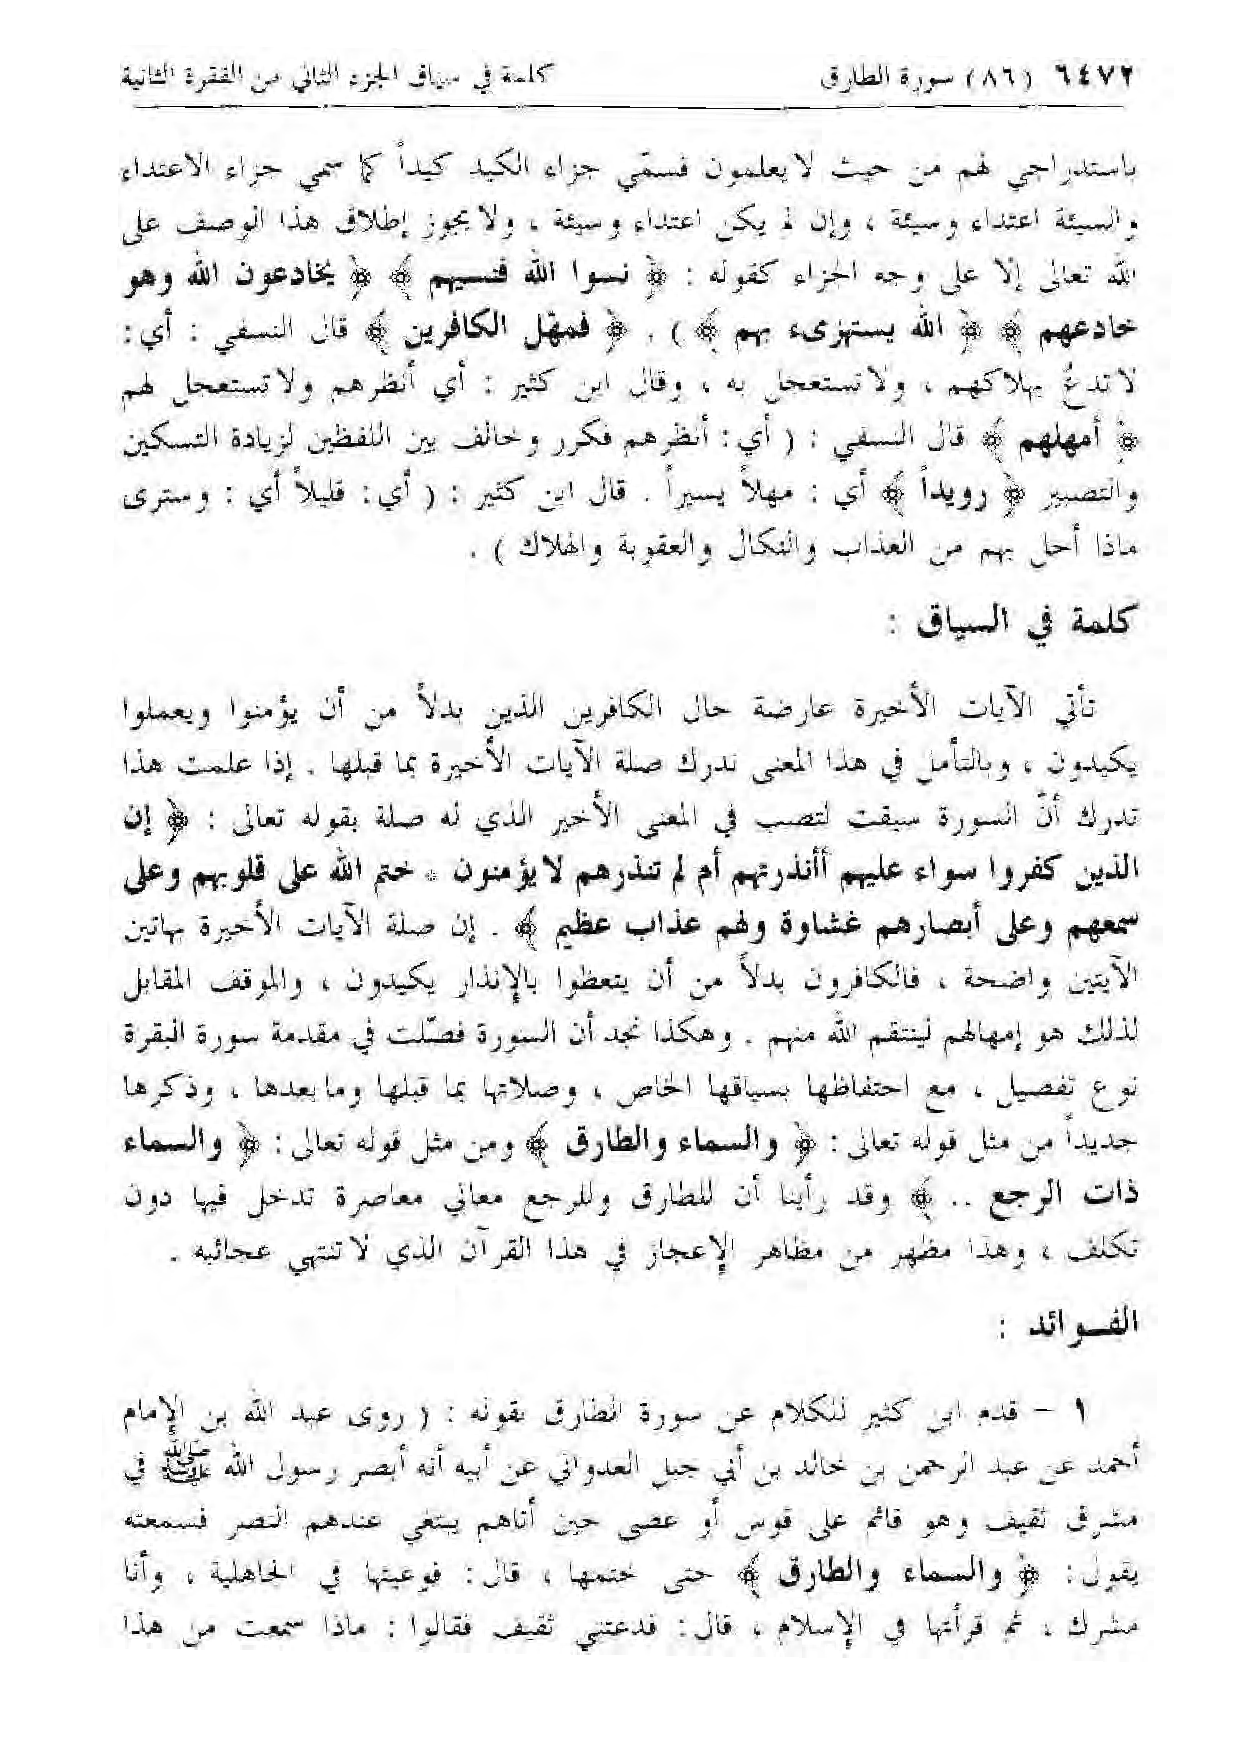 ٦٤٧٢ (٨٦) سورة الطارق كلمة في سياق الجزء الثاني من الفقرة الثانية
باستدراجي لهم من حيث لا يعلمون فسمّي جزاء الكيد كيداً كما سمي جزاء الاعتداء
والسيئة اعتداء وسيئة ، وإن لم يكن اعتداء وسيئة ، ولا يجوز إطلاق هذا الوصف على
الله تعالى إلا على وجه الجزاء كقوله : ﴿ نسوا الله فنسيهم ﴾ ﴿ يخادعون الله وهو
خادعهم ﴾ ﴿ الله يستهزىء بهم ﴾ ) . ﴿ فمهّل الكافرين ﴾ قال النسفي : أي :
لا تدعُ بهلاكهم ، ولا تستعجل به ، وقال ابن كثير : أي أنظرهم ولا تستعجل لهم
﴿ أمهلهم ﴾ قال النسفي : ( أي : أنظرهم فكرر وخالف بين اللفظين لزيادة التسكين
والتصبير ﴿ رويداً ﴾ أي : مهلاً يسيراً . قال ابن كثير : ( أي : قليلاً أي : وسترى
ماذا أحل بهم من العذاب والنكال والعقوبة والهلاك ) .
كلمة في السياق :
تأتي الآيات الأخيرة عارضة حال الكافرين الذين بدلاً من أن يؤمنوا ويعملوا
يكيدون ، وبالتأمل في هذا المعنى ندرك صلة الآيات الأخيرة بما قبلها . إذا علمت هذا
تدرك أنّ السورة سيقت لتصب في المعنى الأخير الذي له صلة بقوله تعالى : ﴿ إن
الذين كفروا سواء عليهم أأنذرتهم أم لم تنذرهم لا يؤمنون * ختم الله على قلوبهم وعلى
سمعهم وعلى أبصارهم غشاوة ولهم عذاب عظيم ﴾ . إن صلة الآيات الأخيرة بهاتين
الآيتين واضحة ، فالكافرون بدلاً من أن يتعظوا بالإنذار يكيدون ، والموقف المقابل
لذلك هو إمهالهم لينتقم الله منهم . وهكذا نجد أن السورة فصّلت في مقدمة سورة البقرة
نوع تفصيل ، مع احتفاظها بسياقها الخاص ، وصلاتها بما قبلها وما بعدها ، وذكرها
جديداً من مثل قوله تعالى : ﴿ والسماء والطارق ﴾ ومن مثل قوله تعالى : ﴿ والسماء
ذات الرجع .. ﴾ وقد رأينا أن للطارق وللرجع معاني معاصرة تدخل فيها دون
تكلف ، وهذا مظهر من مظاهر الإعجاز في هذا القرآن الذي لا تنتهي عجائبه .
الفـوائد :
١ – قدم ابن كثير للكلام عن سورة الطارق بقوله : ( روى عبد الله بن الإمام
أحمد عن عبد الرحمن بن خالد بن أبي جبل العدواني عن أبيه أنه أبصر رسول الله ﷺ في
مشرق ثقيف وهو قائم على قوس أو عصى حين أتاهم يبتغي عندهم النصر فسمعته
يقول : ﴿ والسماء والطارق ﴾ حتى ختمها ، قال : فوعيتها في الجاهلية ، وأنا
مشرك ، ثم قرأتها في الإسلام ، قال : فدعتني ثقيف فقالوا : ماذا سمعت من هذا